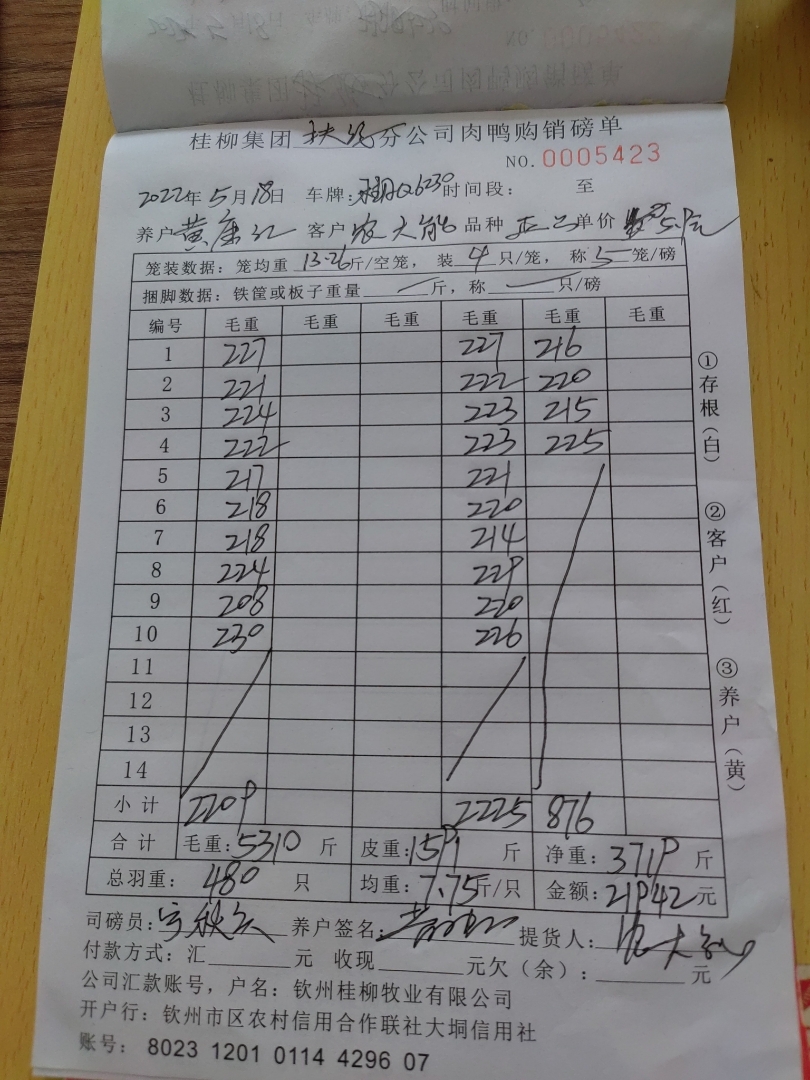 桂柳集团 分公司肉鸭购销磅单
NO.0005423
2022年5月18日 车牌:桂 Q6230 时间段: 至
养户 黄康 客户 农大能 品种 单价 5.1元
笼装数据:笼均重 13.26 斤/空笼,装 4 只/笼,称 5 笼/磅
捆脚数据:铁筐或板子重量 斤,称 只/磅
编号 毛重 毛重 毛重 毛重 毛重 毛重
1 227 227 216
2 221 222 220
3 224 223 215
4 222 223 225
5 217 221
6 218 220
7 218 214
8 224 229
9 208 220
10 230 226
11
12
13
14
小计 2209 2225 876
合计 毛重:5310 斤 皮重:1591 斤 净重:3719 斤
总羽重: 480 只 均重:7.75斤/只 金额:21942元
司磅员: 养户签名: 提货人: 农大能
付款方式:汇 元 收现 元欠(余): 元
公司汇款账号,户名:钦州桂柳牧业有限公司
开户行:钦州市区农村信用合作联社大垌信用社
账号: 8023 1201 0114 4296 07
①存根(白) ②客户(红) ③养户(黄)